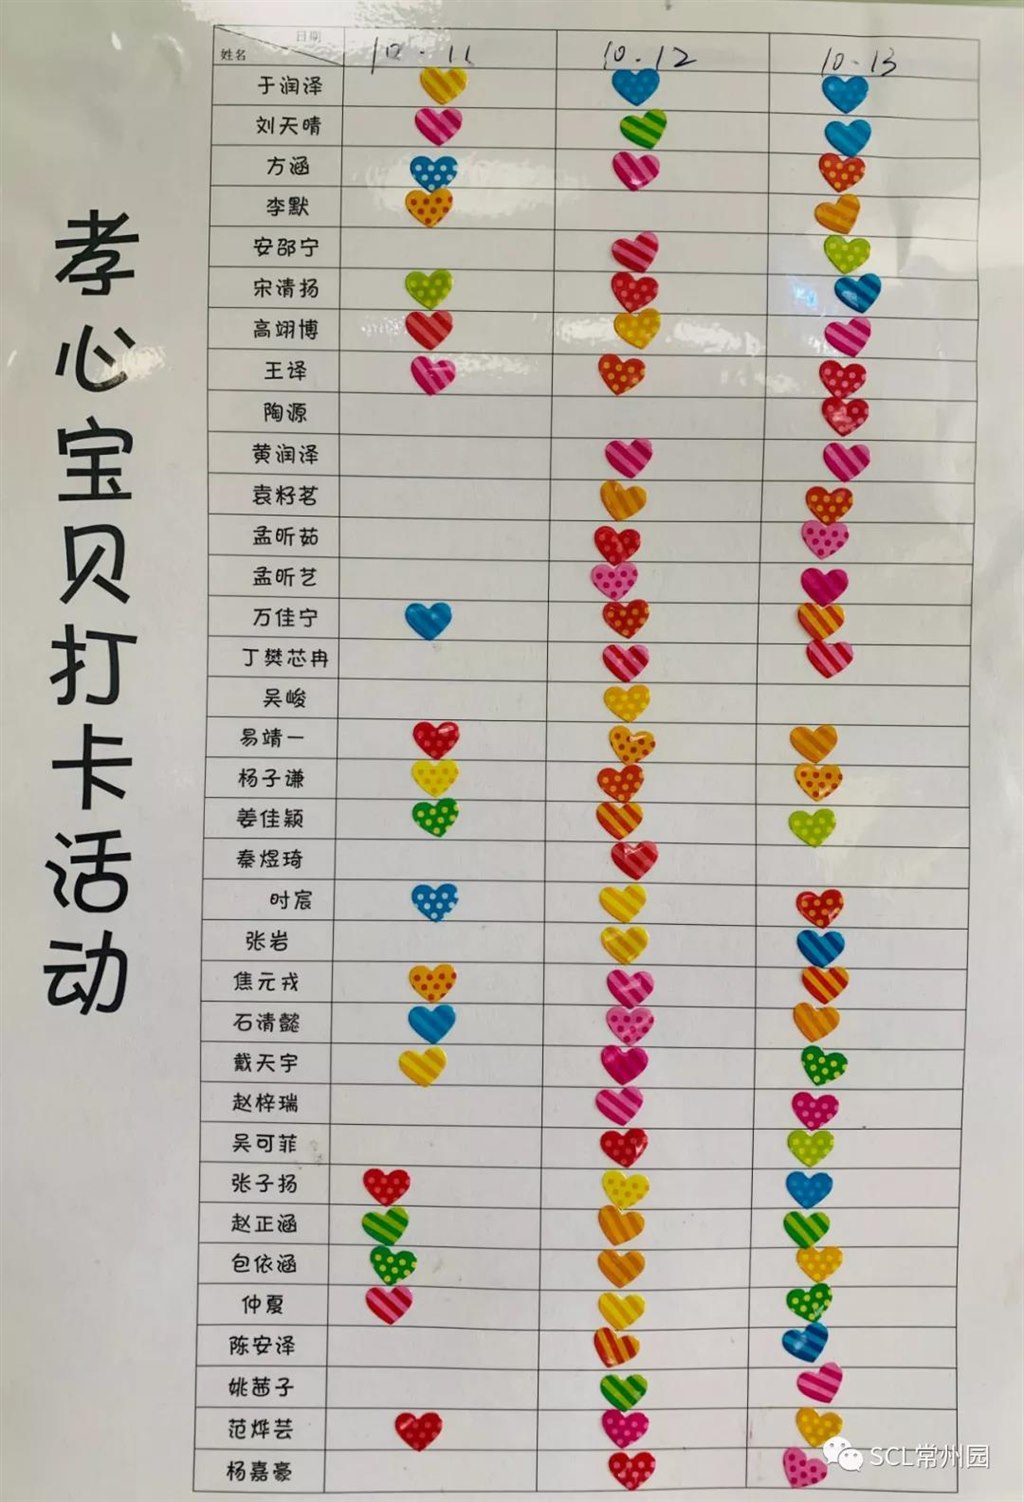 孝心宝贝打卡活动
日期
姓名
10.11 10.12 10.13
于润泽
刘天晴
方涵
李默
安邵宁
宋清扬
高翊博
王译
陶源
黄润泽
袁籽茗
孟昕茹
孟昕艺
万佳宁
丁樊芯冉
吴峻
易靖一
杨子谦
姜佳颖
秦煜琦
时宸
张岩
焦元戎
石清懿
戴天宇
赵梓瑞
吴可菲
张子扬
赵正涵
包依涵
仲夏
陈安泽
姚茜子
范烨芸
杨嘉豪
SCL常州园